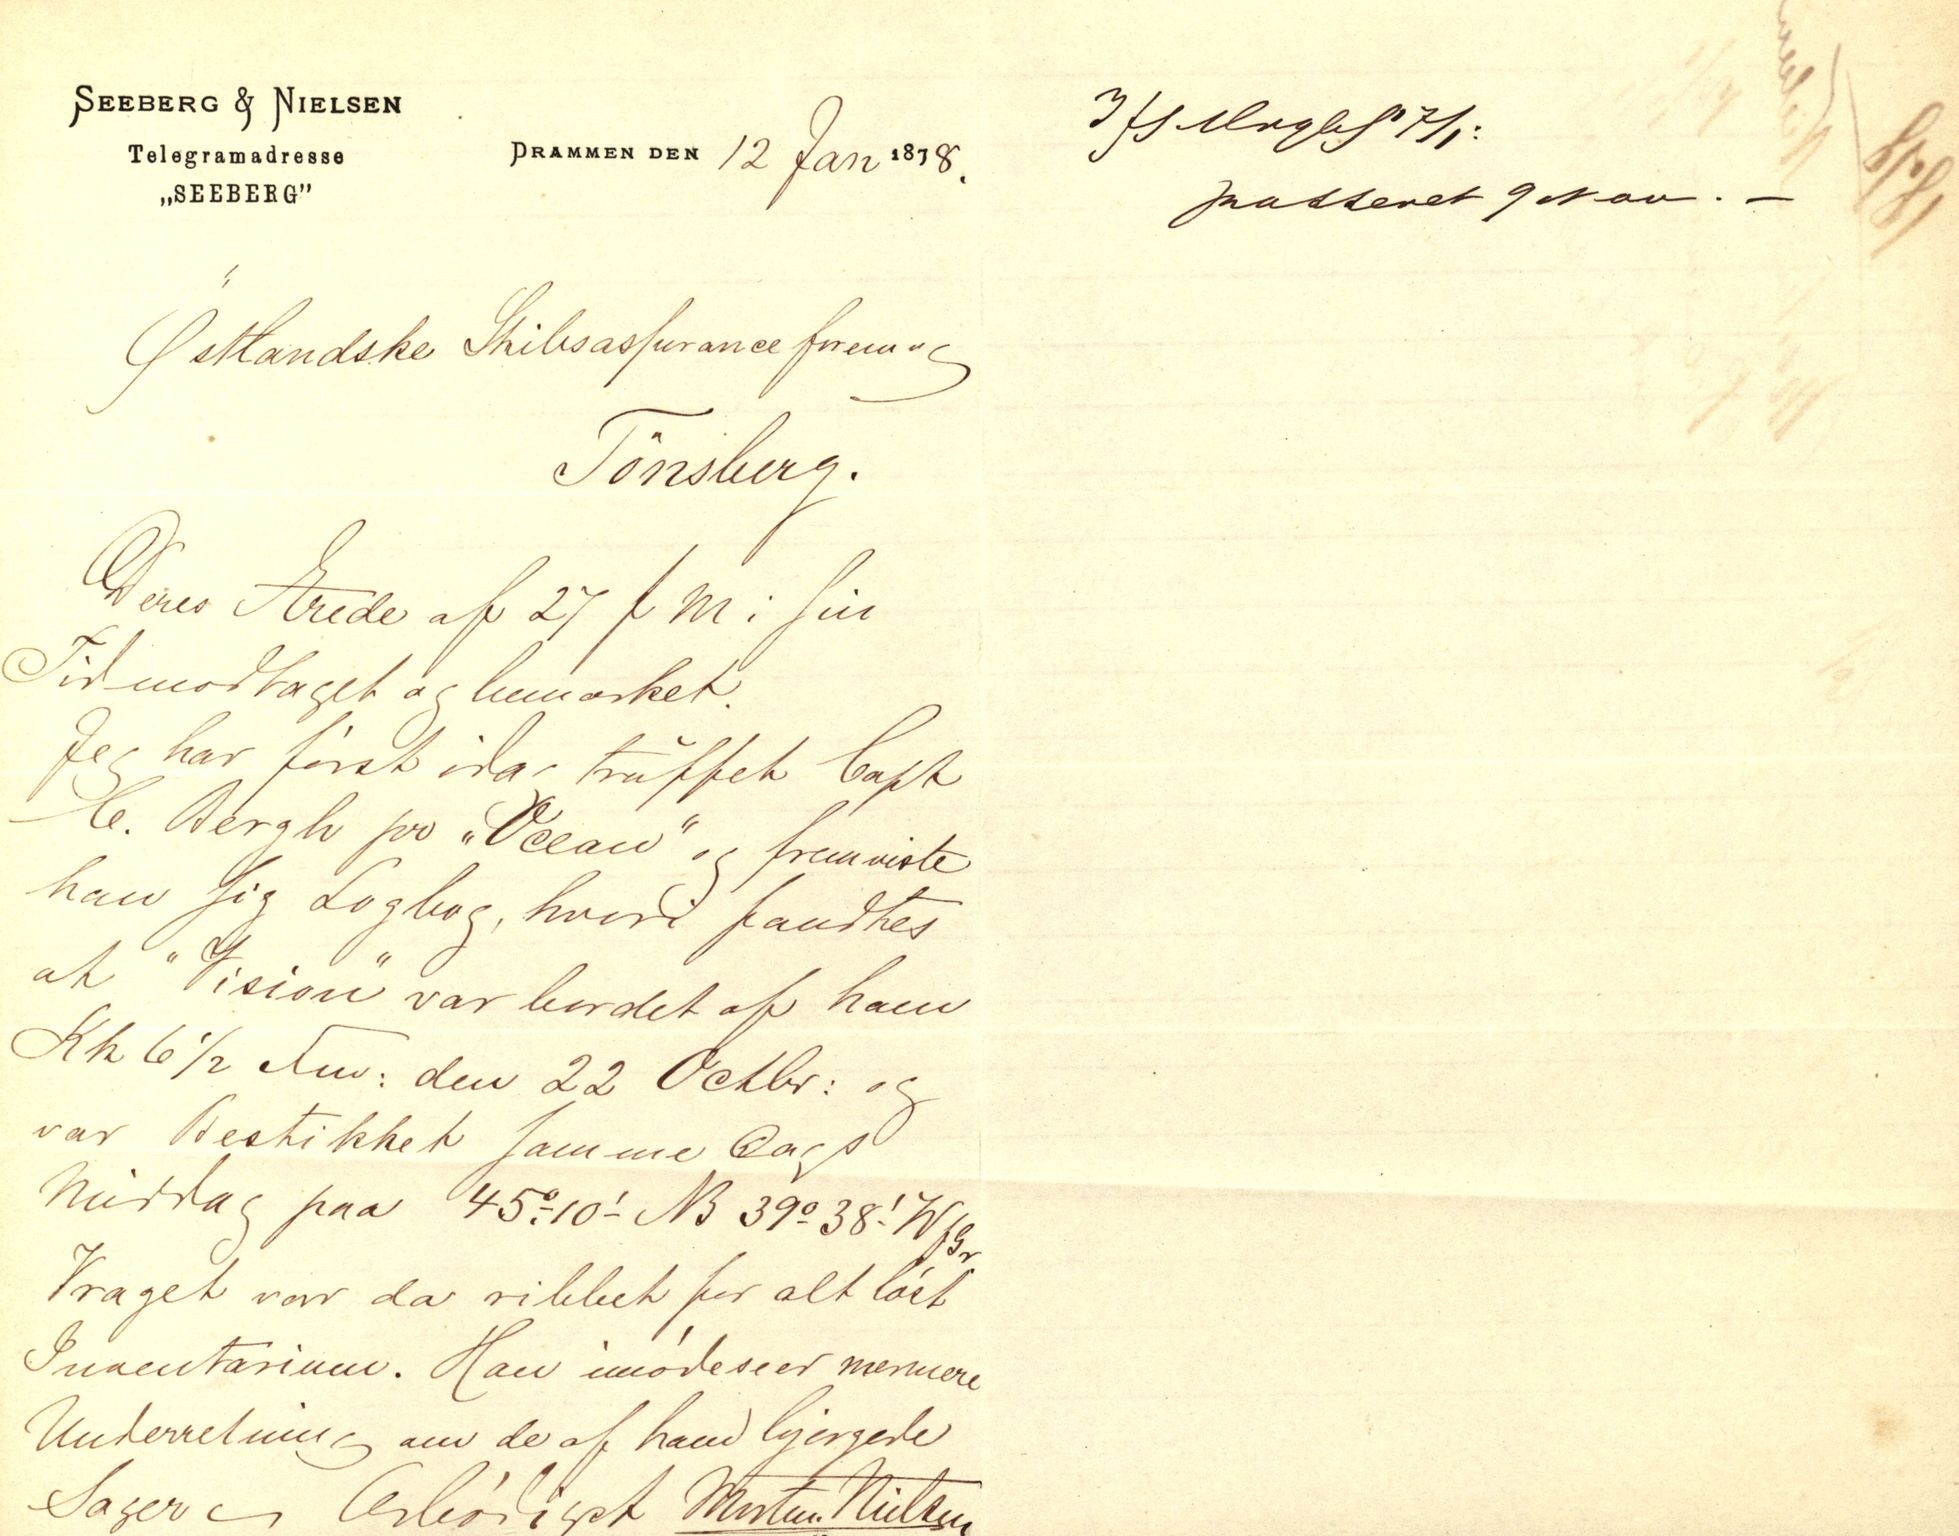 SEEBERG & NIELSEN
Telegramadresse
„SEEBERG”
DRAMMEN DEN 12 Jan 1878.
Östlandske Skibsassuranceforening
Tönsberg.
Deres Ærede af 27 f M i sin
Tid modtaget og bemærket.
Jeg har först idag träffet Capt
C. Bergh pr „Ocean“ og fremviste
han sig Logbog, hvori fandtes
at "Vision" var bordet af ham
Kl 6 1/2 Fm: den 22 Octbr: og
var Bestikket samme Dags
Middag paa 45° 10' NB 39° 38' W f Gr
Vraget var da ribbet for alt löst
Inventarium. Han imödeseer nermere
Underretning om de af ham bjergede
Sager og Ærbödigst Morten Nielsen
7/1:
passeret 9 Nov. —